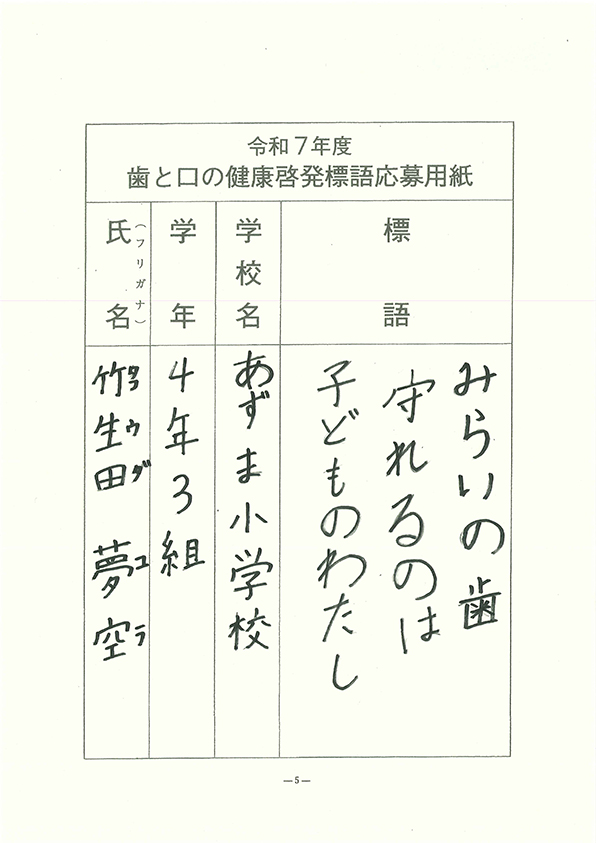 令和７年度
歯と口の健康啓発標語応募用紙
標語
みらいの歯
守れるのは
子どものわたし
学校名
あずま小学校
学年
4年3組
氏名
（フリガナ）
竹生田 夢空
タコウダ ユラ
―5―